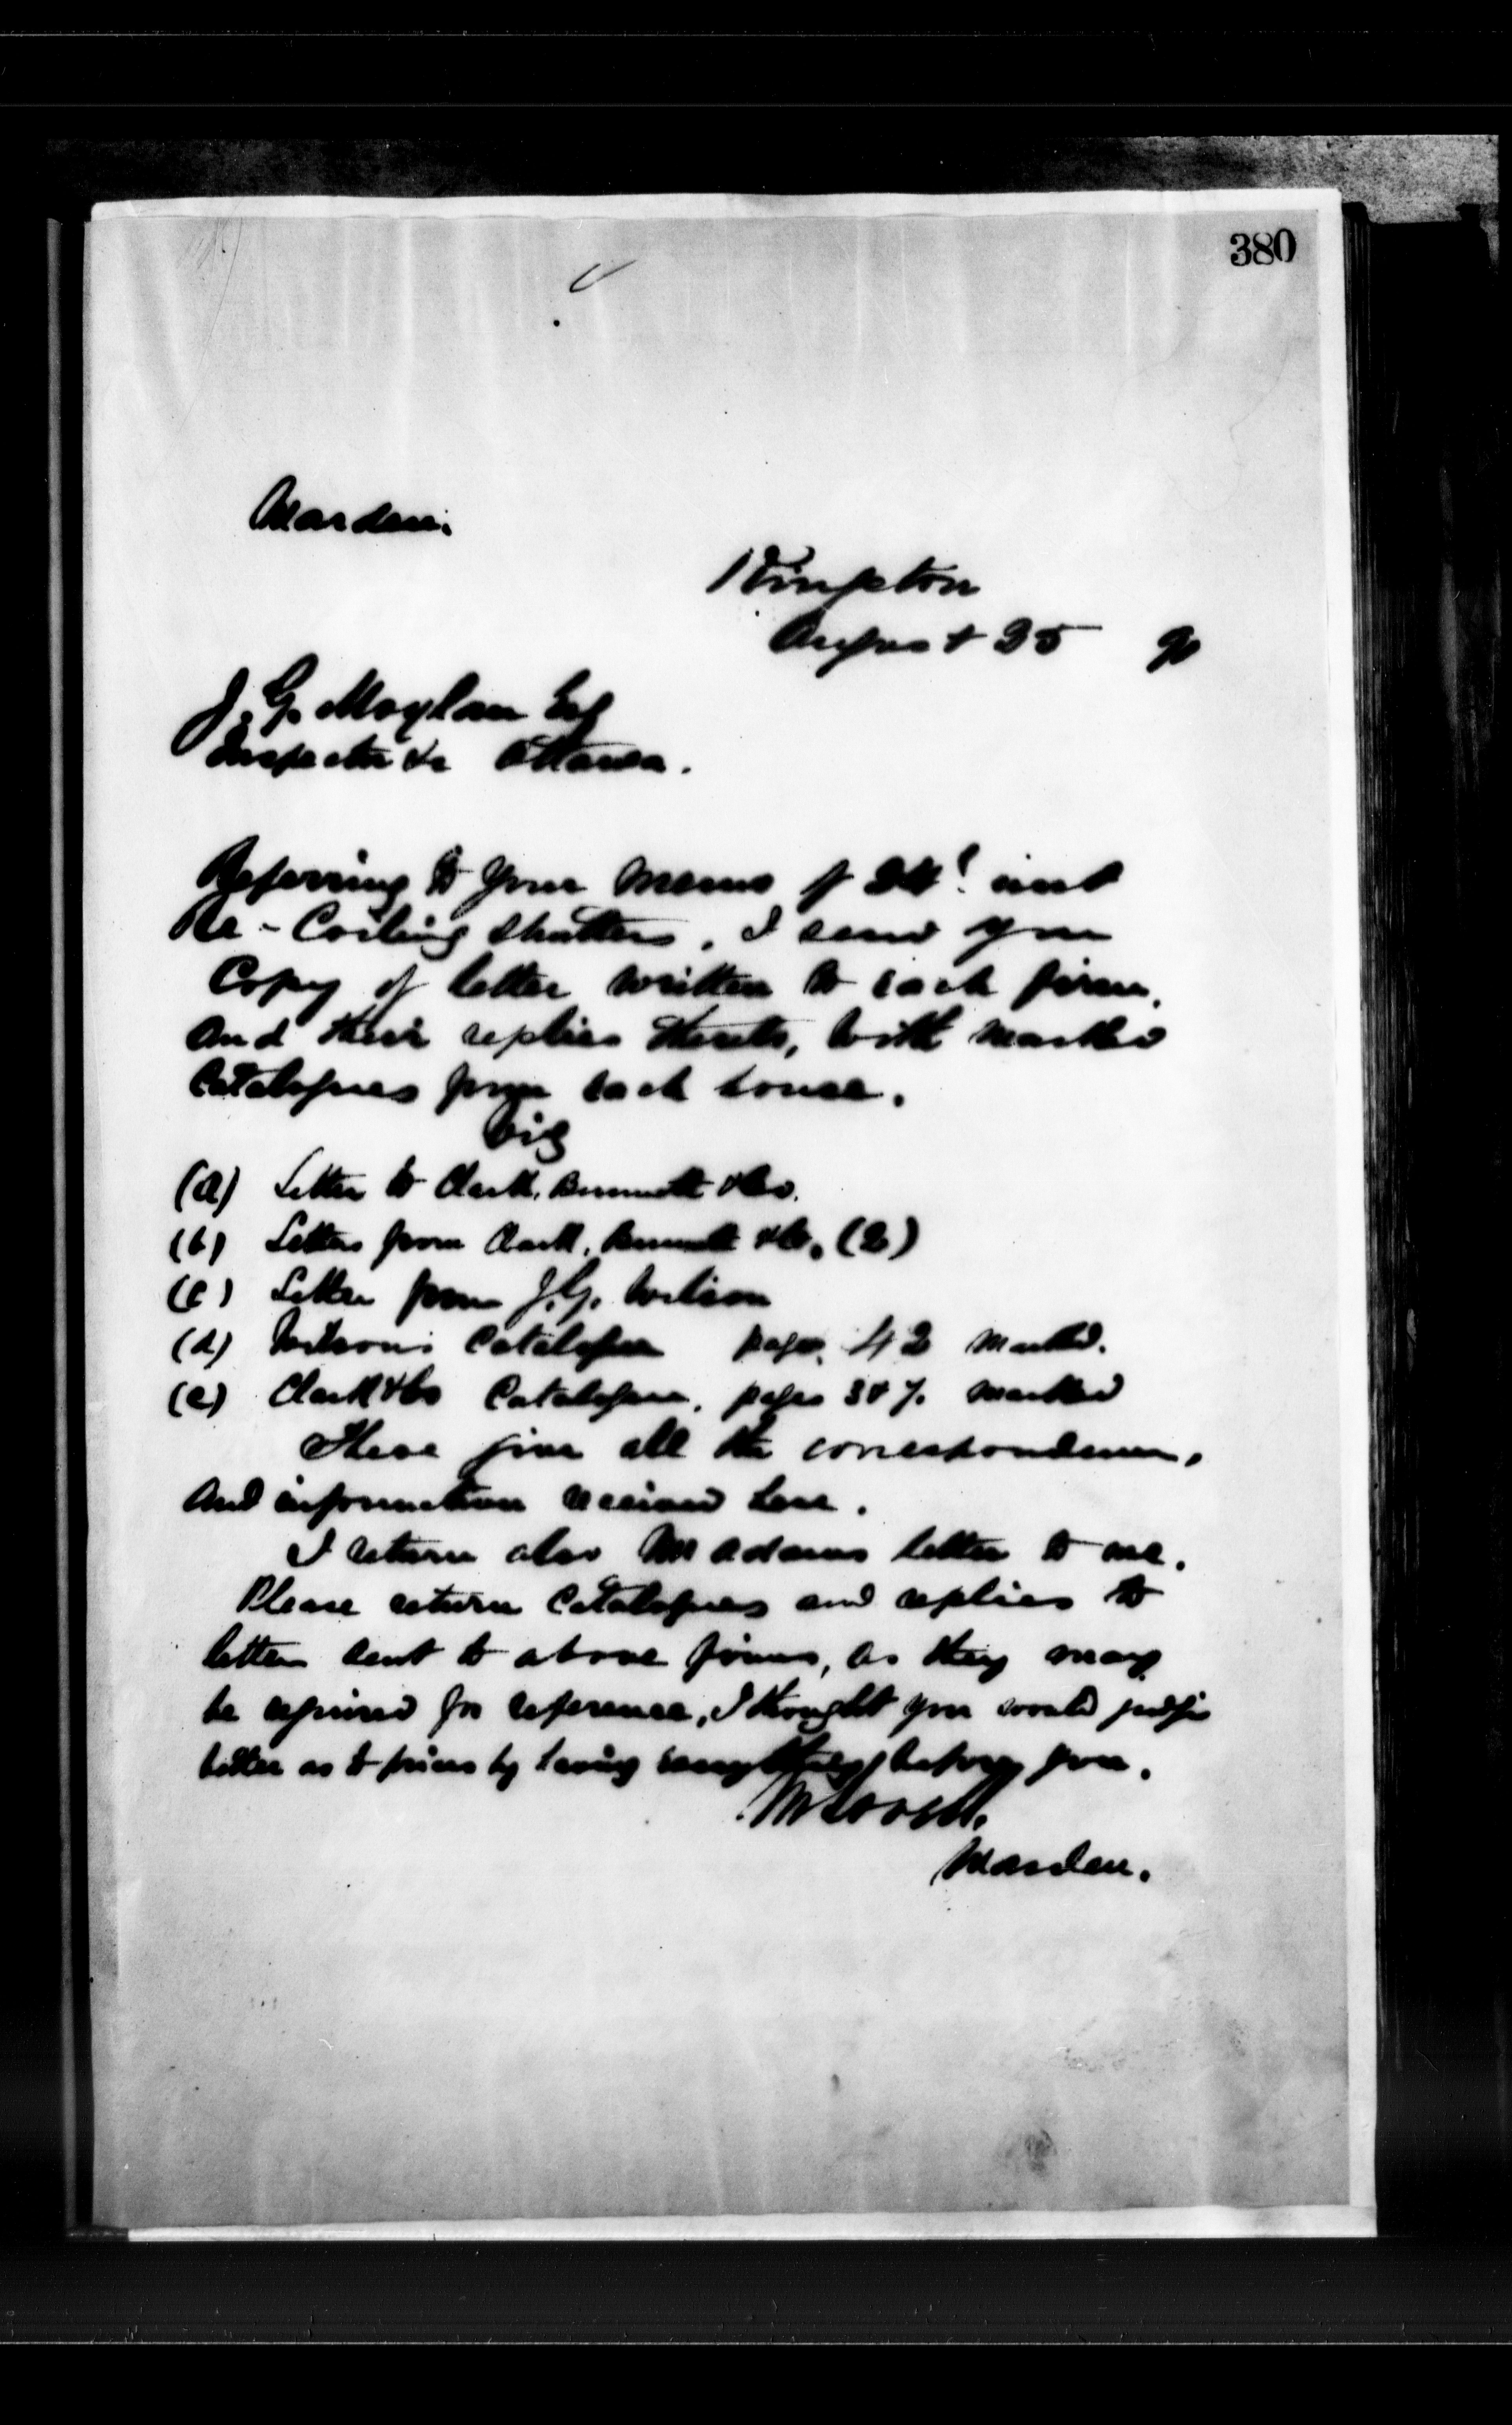 380
Warden.
Kingston
August 25 90
J. G. Moylan Esq
Inspector &c Ottawa.
Referring to your memo of 24' inst
Re - Coiling Shutters, I send you
Copy of letter written to each firm,
And their replies thereto, with marked
Catalogues from each house.
Viz
(a) Letter to Clark, Bunnett & Co.
(b) Letters from Clark, Bunnett & Co. (2)
(c) Letter from J. G. Wilson
(d) Wilson's Catalogue page. 42 marked.
(e) Clark & Co Catalogue, pages 3 & 7. marked
These give all the correspondence,
And information received here.
I return also Mr Adams letter to me.
Please return Catalogues and replies to
letters sent to above firms, as they may
be required for reference, I thought you would judge
better as to prices by having everything before you.
M Lavell.
Warden.